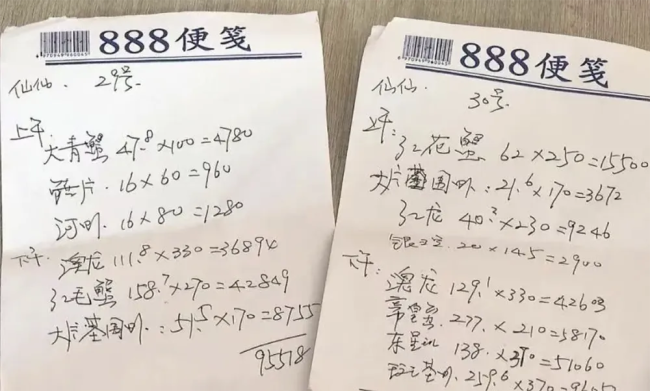 888便笺
仙仙. 29号.
上午
大青蟹 47.8×100=4780
片. 16×60=960
河虾. 16×80=1280
下午: 澳龙 111.8×330=36894
红毛蟹 158.7×270=42849
大片基围虾: 51.5×170=8755
95518
888便笺
仙仙. 30号.
上午:
红花蟹 62×250=15500
大片基围虾: 21.6×170=3672
红龙 40.2×230=9246
20×145=2900
下午:
澳龙 129.1×330=42603
帝皇蟹 277×210=58170
东星斑 138×370=51060
259.6×370=